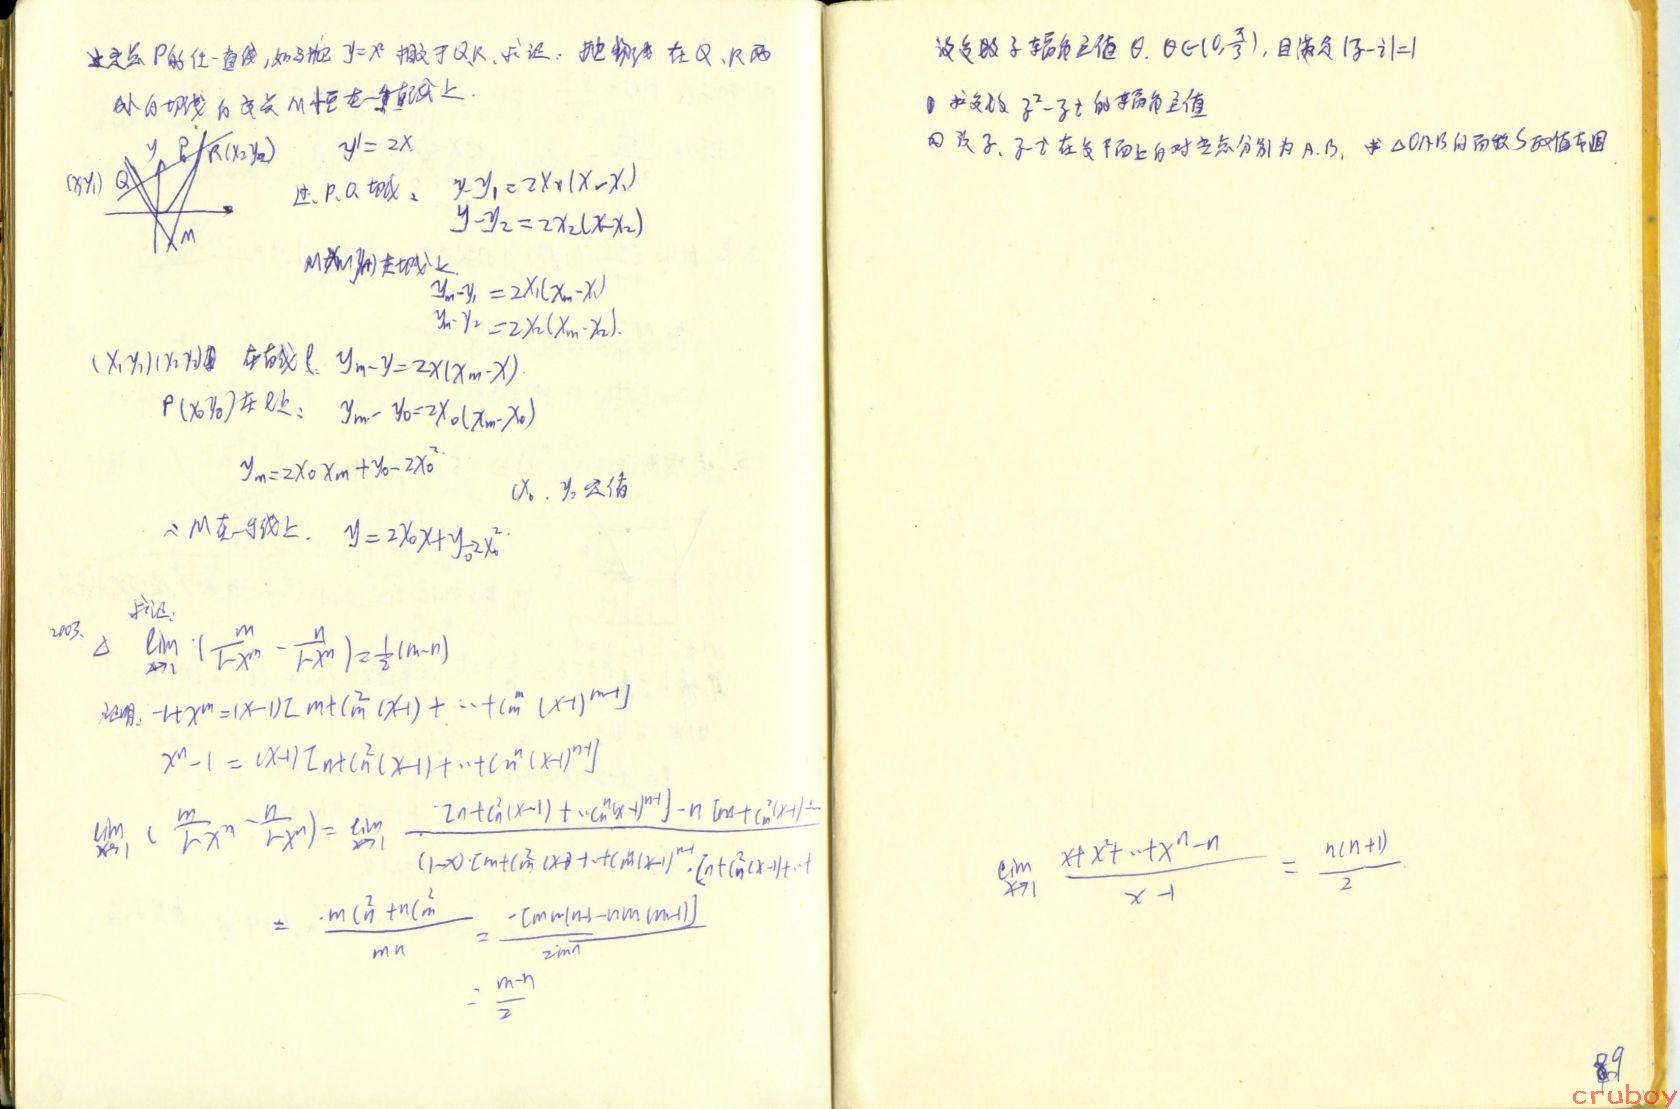 过定点P的任一直线,如与抛 y=x² 相交于Q,R,求证: 抛物线在Q、R两
处的切线的交点M恒在一条直线上.
y
P
R(x₂y₂)
(x₁y₁) Q
M
y'=2x
过、P、Q切线:
y-y₁=2x₁(x-x₁)
y-y₂=2x₂(x-x₂)
在切线上.
yₘ-y₁=2x₁(xₘ-x₁)
yₘ-y₂=2x₂(xₘ-x₂).
(x₁y₁)(x₂y₂) 在直线l: yₘ-y=2x(xₘ-x).
P(x₀y₀)在l上: yₘ-y₀=2x₀(xₘ-x₀)
yₘ=2x₀xₘ+y₀-2x₀²
(x₀、y₀定值
∴M在一直线上. y=2x₀x+y₀-2x₀².
求证:
2003. △ lim x→1 (m/(1-xᵐ) - n/(1-xⁿ))=1/2(m-n)
证明: -1+xᵐ=(x-1)[m+Cₘ²(x-1)+…+Cₘᵐ(x-1)ᵐ⁻¹]
xⁿ-1=(x-1)[n+Cₙ²(x-1)+…+Cₙⁿ(x-1)ⁿ⁻¹]
lim x→1 (m/(1-xᵐ) - n/(1-xⁿ))=lim x→1 [n+Cₙ²(x-1)+…Cₙⁿ(x-1)ⁿ⁻¹]-n[m+Cₘ²(x-1)+…
(1-x)·[m+Cₘ²(x-1)+…+Cₘᵐ(x-1)ᵐ⁻¹·[n+Cₙ²(x-1)+…+
= (-mCₙ²+nCₘ²)/mn = -[mn(n-1)-nm(m-1)]/2mn
= (m-n)/2
设复数z辐角主值θ, θ∈(0,π/3), 且满足|z-i|=1
求复数z²-zi的辐角主值
设z、zi在复平面上的对应点分别为A.B, 求△OAB的面积S取值范围
lim x→1 (x+x²+…+xⁿ-n)/(x-1) = n(n+1)/2
89
cruboy